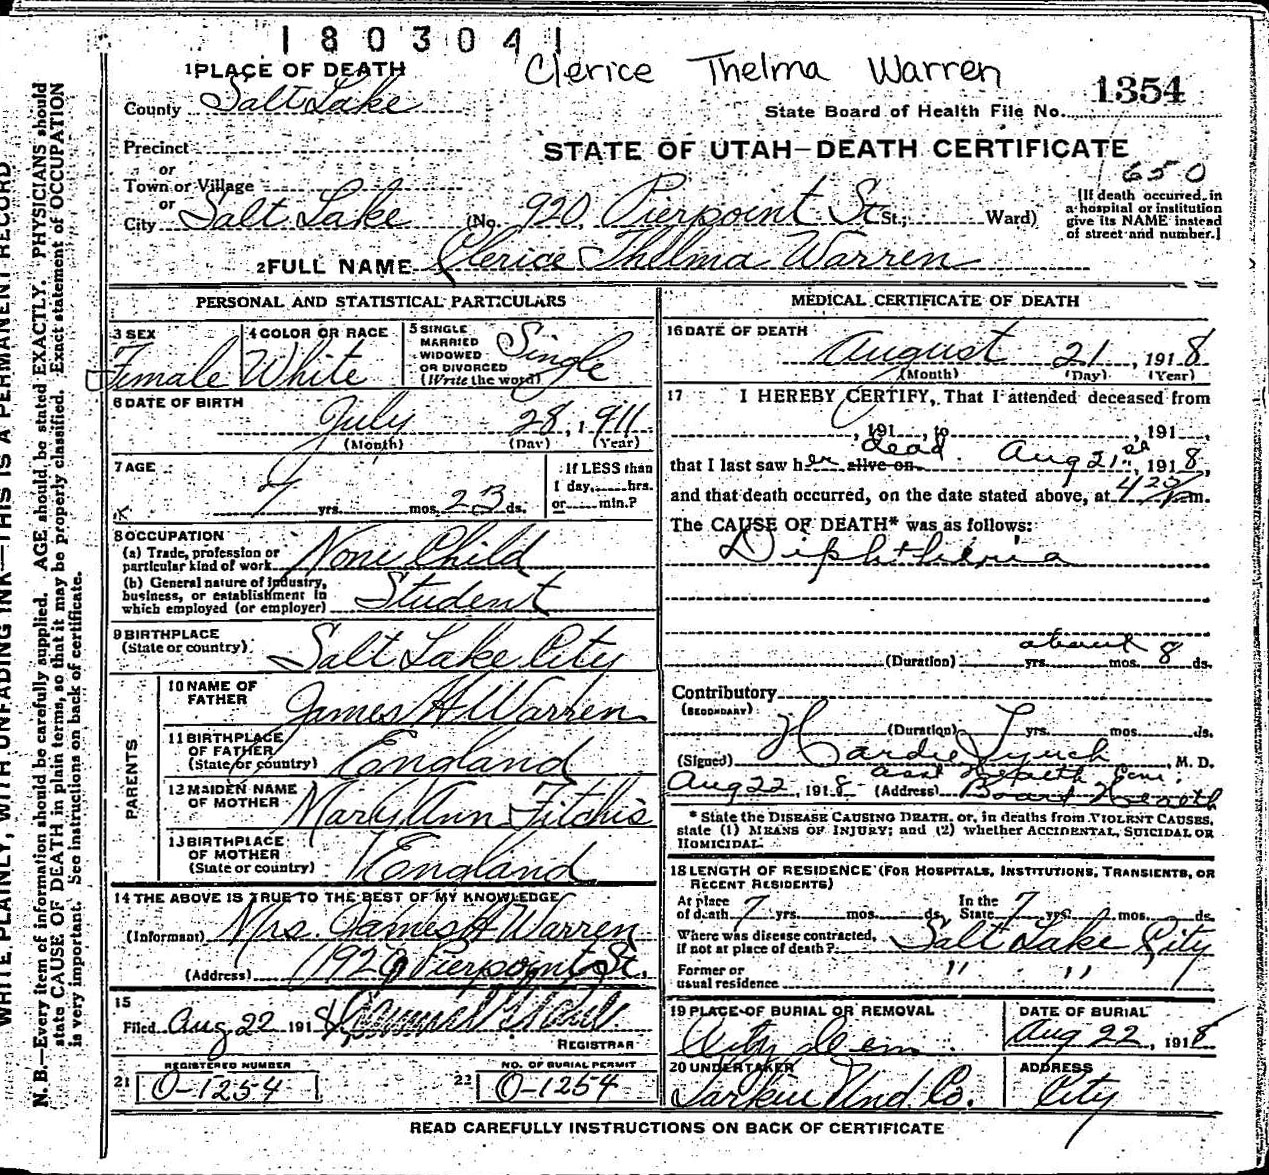 1803041
Clerice Thelma Warren
1 PLACE OF DEATH
County Salt Lake
1354
State Board of Health File No.
Precinct
STATE OF UTAH—DEATH CERTIFICATE
or
Town or Village
650
or
City Salt Lake (No. 920, Pierpoint St St.; Ward)
[If death occurred in
a hospital or institution
give its NAME instead
of street and number.]
2 FULL NAME Clerice Thelma Warren
PERSONAL AND STATISTICAL PARTICULARS
3 SEX
Female
4 COLOR OR RACE
White
5 SINGLE
MARRIED
WIDOWED
OR DIVORCED
(Write the word)
Single
6 DATE OF BIRTH
July 28, 1911
(Month) (Day) (Year)
7 AGE
7 yrs. mos. 23 ds.
If LESS than
1 day, hrs.
or min.?
8 OCCUPATION
(a) Trade, profession or
particular kind of work None Child
(b) General nature of industry,
business, or establishment in
which employed (or employer) Student
9 BIRTHPLACE
(State or country) Salt Lake City
PARENTS
10 NAME OF
FATHER James H Warren
11 BIRTHPLACE
OF FATHER
(State or country) England
12 MAIDEN NAME
OF MOTHER Mary Ann Fitchis
13 BIRTHPLACE
OF MOTHER
(State or country) England
14 THE ABOVE IS TRUE TO THE BEST OF MY KNOWLEDGE
(Informant) Mrs. James H Warren
(Address) 920 Pierpoint St.
15
Filed Aug 22 1918
REGISTRAR
REGISTERED NUMBER
21 O-1254
NO. OF BURIAL PERMIT
22 O-1254
MEDICAL CERTIFICATE OF DEATH
16 DATE OF DEATH
August 21, 1918
(Month) (Day) (Year)
17 I HEREBY CERTIFY, That I attended deceased from
, 191 , to , 191 ,
that I last saw her alive on dead Aug 21, 1918,
and that death occurred, on the date stated above, at m.
The CAUSE OF DEATH* was as follows:
Diphtheria
about
(Duration) yrs. mos. 8 ds.
Contributory
(SECONDARY)
(Duration) yrs. mos. ds.
(Signed) Hardie Lynch, M. D.
Aug 22, 1918 (Address) asst Health Com.
Board Health
* State the DISEASE CAUSING DEATH, or, in deaths from VIOLENT CAUSES,
state (1) MEANS OF INJURY; and (2) whether ACCIDENTAL, SUICIDAL OR
HOMICIDAL.
18 LENGTH OF RESIDENCE (FOR HOSPITALS, INSTITUTIONS, TRANSIENTS, OR
RECENT RESIDENTS)
At place
of death 7 yrs. mos. ds.
In the
State 7 yrs. mos. ds.
Where was disease contracted,
if not at place of death? Salt Lake City
Former or
usual residence " "
19 PLACE OF BURIAL OR REMOVAL
City Cem
DATE OF BURIAL
Aug 22, 1918
20 UNDERTAKER
Larkin Und Co.
ADDRESS
City
READ CAREFULLY INSTRUCTIONS ON BACK OF CERTIFICATE
WRITE PLAINLY, WITH UNFADING INK—THIS IS A PERMANENT RECORD
N. B.—Every item of information should be carefully supplied. AGE should be stated EXACTLY. PHYSICIANS should
state CAUSE OF DEATH in plain terms, so that it may be properly classified. Exact statement of OCCUPATION
is very important. See instructions on back of certificate.